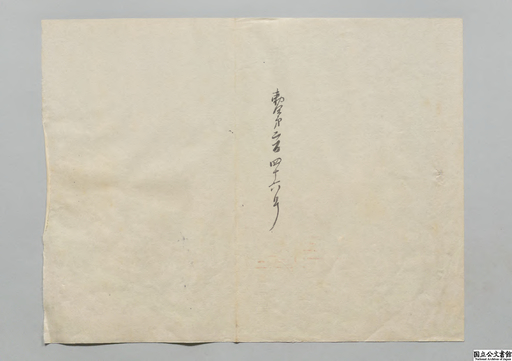 勅令第二百四十六号
国立公文書館
National Archives of Japan